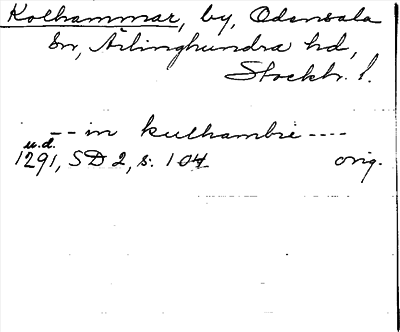 Kolhammar, by, Odensala
sn, Ärlinghundra hd,
Stockh. l.
-- in kulhambre ----
u.d.
1291, SD 2, s. 104 orig.